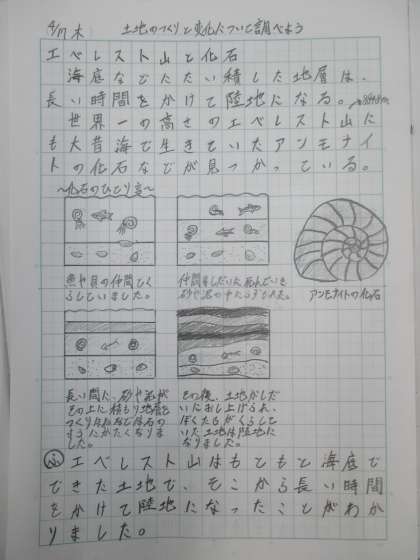 4/17 木 土地のつくりと変化について調べよう
エベレスト山と化石
海底などにたい積した地層は、
長い時間をかけて陸地になる。
世界一の高さのエベレスト山に
も大昔海で生きていたアンモナイ
トの化石などが見つかっている。
〜化石のひとり言〜
魚や貝の仲間とくらしていました。
仲間
砂や泥の中に
アンモナイトの化石
長い間に、砂や泥が
その上に積もり地層を
つくり
ようにかたくなりま
した。
その後、土地がしだ
いにおし上げられ、
ぼくたちがくらして
いた土地は陸地に
なりました。
ふ エベレスト山はもともと海底で
できた土地で、そこから長い時間
をかけて陸地になったことがわか
りました。